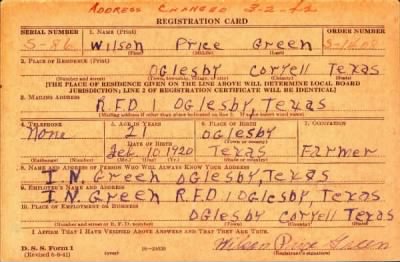 ADDRESS CHANGED 3-2-42
REGISTRATION CARD
SERIAL NUMBER 1. NAME (Print) ORDER NUMBER
S-86 Wilson Price Green S-1408
2. PLACE OF RESIDENCE (Print)
Oglesby Coryell Texas
(Number and street) (Town, township, village, or city) (County) (State)
[THE PLACE OF RESIDENCE GIVEN ON THE LINE ABOVE WILL DETERMINE LOCAL BOARD
JURISDICTION; LINE 2 OF REGISTRATION CERTIFICATE WILL BE IDENTICAL]
3. MAILING ADDRESS
R.F.D. 1 Oglesby, Texas
[Mailing address if other than place indicated on line 2. If same insert word same]
4. TELEPHONE 5. AGE IN YEARS 6. PLACE OF BIRTH 7. OCCUPATION
None 21 Oglesby
DATE OF BIRTH (Town or county)
Feb. 10 1920 Texas Farmer
(Exchange) (Number) (Mo.) (Day) (Yr.) (State or country)
8. NAME AND ADDRESS OF PERSON WHO WILL ALWAYS KNOW YOUR ADDRESS
I.N. Green Oglesby, Texas
9. EMPLOYER'S NAME AND ADDRESS
I.N. Green R.F.D. 1 Oglesby, Texas
10. PLACE OF EMPLOYMENT OR BUSINESS
Oglesby Coryell Texas
(Number and street or R. F. D. number) (Town) (County) (State)
I AFFIRM THAT I HAVE VERIFIED ABOVE ANSWERS AND THAT THEY ARE TRUE.
D. S. S. Form 1
(Revised 6-9-41) (over) Wilson Price Green